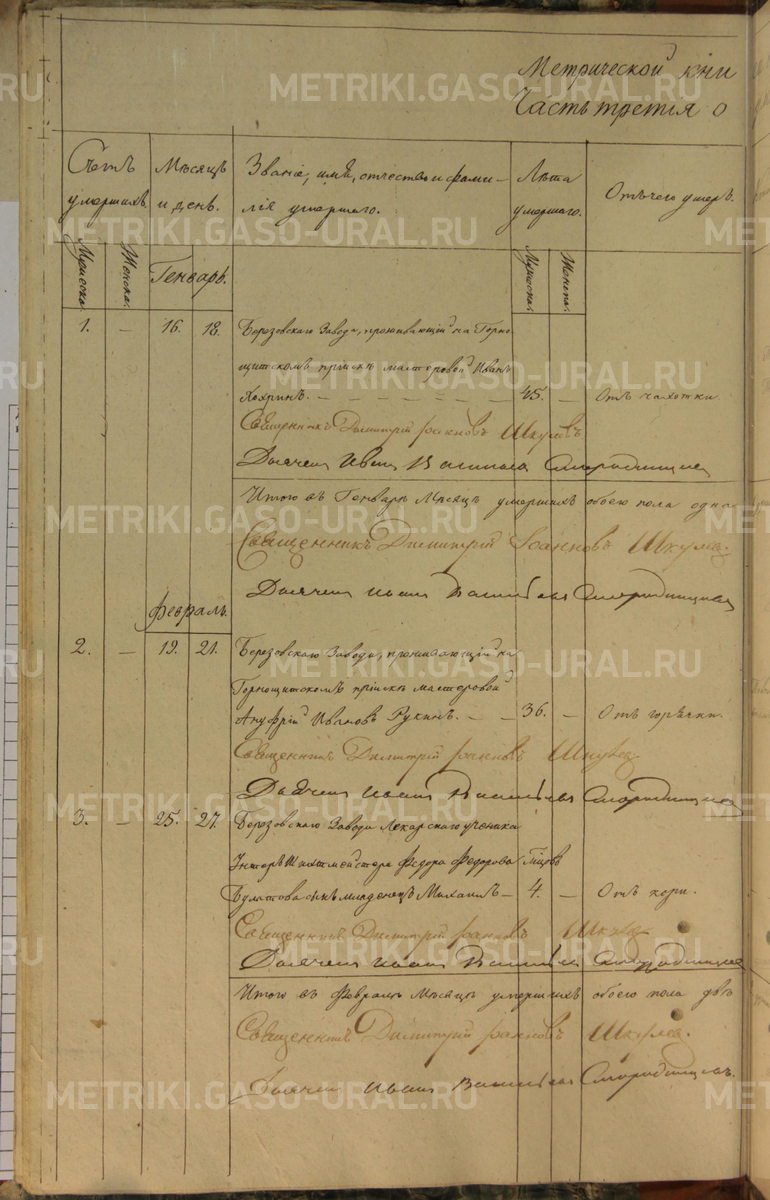 Метрической кни
Часть третія о
Счетъ умершихъ.
Мѣсяцъ и день.
Званіе, имя, отчество и фами-
лія умершаго.
Лѣта умершаго.
Отъ чего умеръ.
Мужска.
Женска.
Генварь.
Мужска.
Женска.
1. — 16. 18. Березовскаго Завода, проживающій на Горно-
щитскомъ пріискѣ мастеровой Иванъ
Кохринъ. — 45. — Отъ чахотки
Священникъ Димитрій Іоанновъ
Дьячекъ Иванъ Васильевъ Смородинцевъ
Итого въ Генварѣ Мѣсяцѣ умершихъ обоего пола одна
Священникъ Димитрій Іоанновъ
Дьячекъ Иванъ Васильевъ Смородинцевъ
Февраль.
2. — 19. 21. Березовскаго Завода, проживающій на
Горнощитскомъ пріискѣ мастеровой
Ануфрій Ивановъ Рукинъ. — — 36. — Отъ горячки.
Священникъ Димитрій Іоанновъ
Дьячекъ Иванъ Васильевъ Смородинцевъ
3. — 25. 27. Березовскаго Завода Лекарскаго ученика
Унтеръ Шихтмейстера Федора Федорова
Булатова сынъ младенецъ Михаилъ — 4. — Отъ кори.
Священникъ Димитрій Іоанновъ
Дьячекъ Иванъ Васильевъ Смородинцевъ
Итого въ Февралѣ Мѣсяцѣ умершихъ обоего пола двѣ
Священникъ Димитрій Іоанновъ
Дьячекъ Иванъ Васильевъ Смородинцевъ.
METRIKI.GASO-URAL.RU